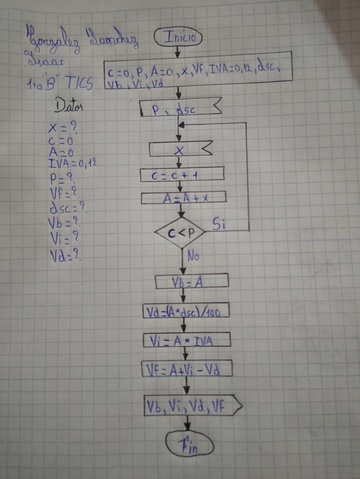 Gonzalez Sanchez
Isaac
1ro "B" TICS
Datos
x = ?
c = 0
A = 0
IVA = 0,12
P = ?
Vf = ?
dsc = ?
Vb = ?
Vi = ?
Vd = ?
Inicio
c=0, P, A=0, x, Vf, IVA=0,12, dsc,
Vb, Vi, Vd
P, dsc
x
c = c + 1
A = A + x
c < P
Si
No
Vb = A
Vd=(A*dsc)/100
Vi = A * IVA
Vf = A+Vi-Vd
Vb, Vi, Vd, Vf
Fin